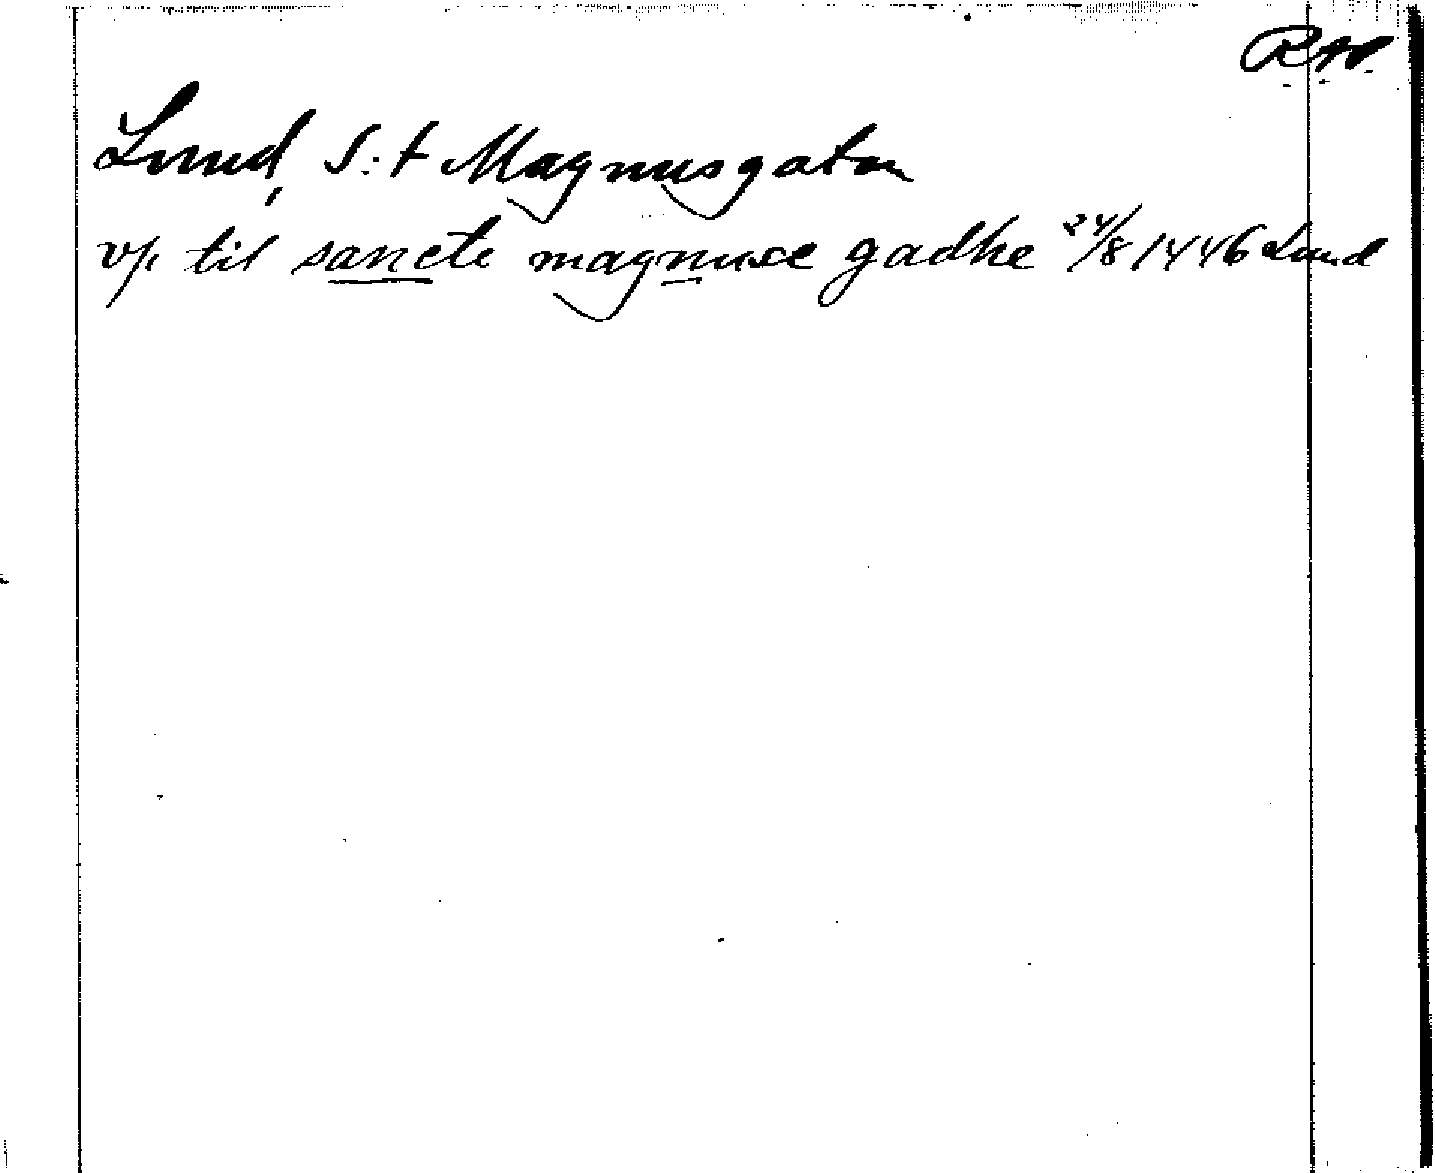 RAP.
Lund, S:t Magnusgatan
vp til sancte magnuse gadhe 24/8 1446 Lund